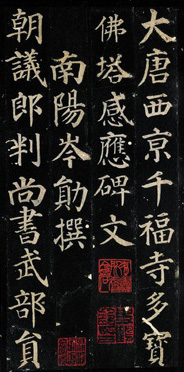 大唐西京千福寺多寶
佛塔感應碑文
南陽岑勛撰
朝議郎判尚書武部員